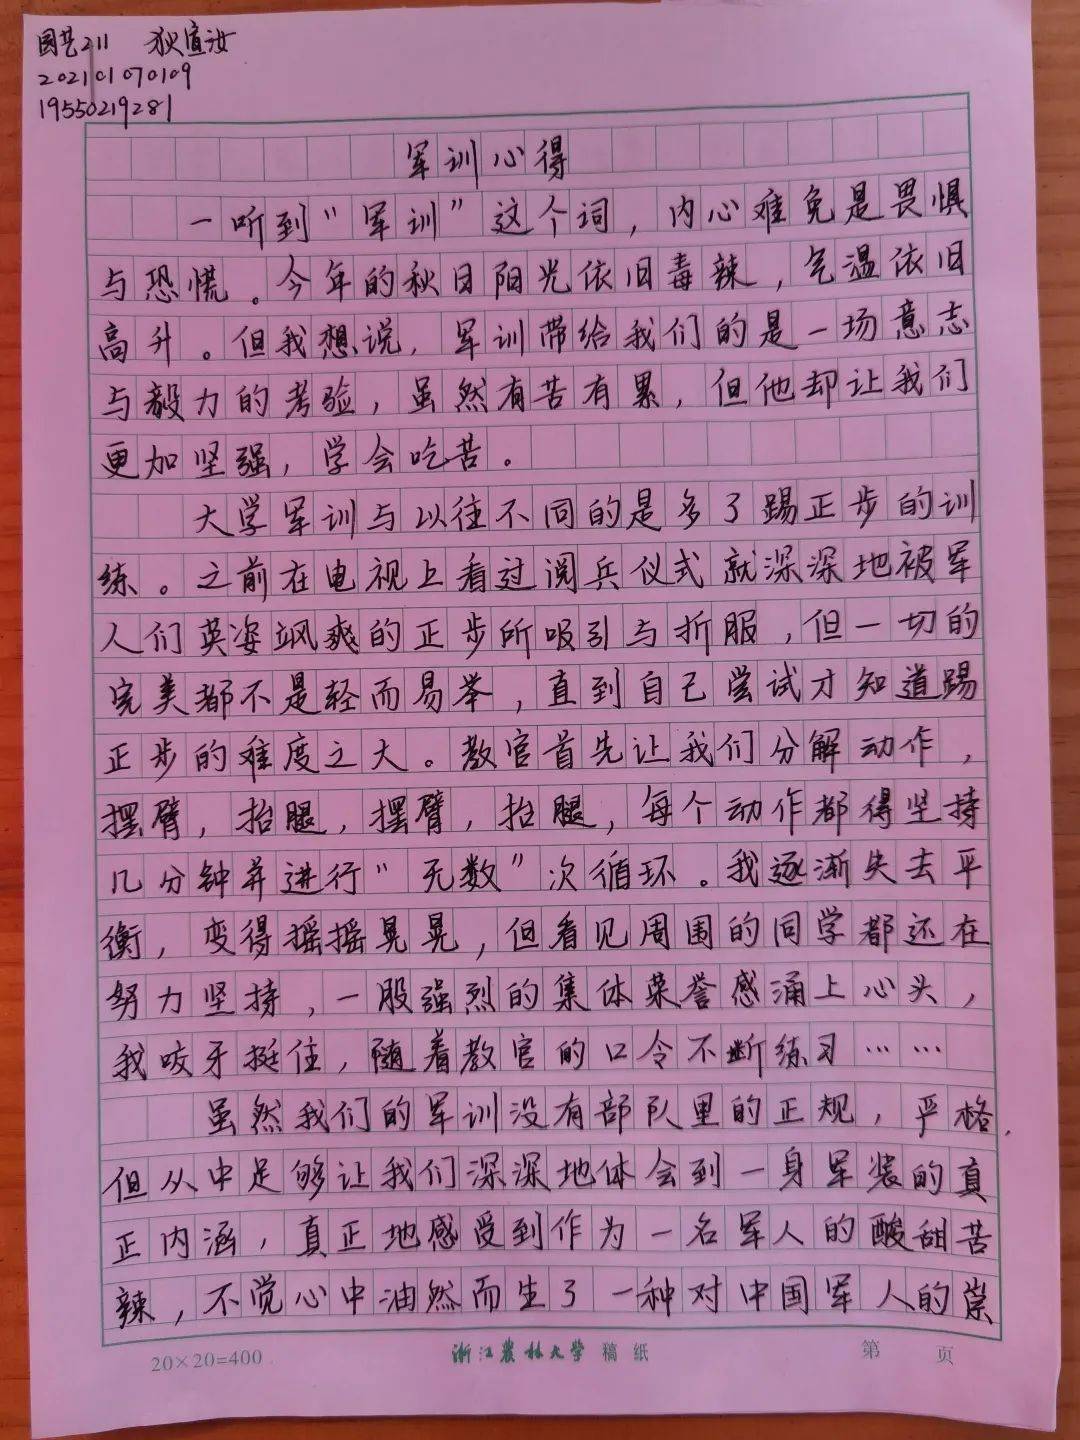 园艺211 狄宣汝
202101070109
19550219281
军训心得
一听到“军训”这个词，内心难免是畏惧
与恐慌。今年的秋日阳光依旧毒辣，气温依旧
高升。但我想说，军训带给我们的是一场意志
与毅力的考验，虽然有苦有累，但他却让我们
更加坚强，学会吃苦。
大学军训与以往不同的是多了踢正步的训
练。之前在电视上看过阅兵仪式就深深地被军
人们英姿飒爽的正步所吸引与折服，但一切的
完美都不是轻而易举，直到自己尝试才知道踢
正步的难度之大。教官首先让我们分解动作，
摆臂，抬腿，摆臂，抬腿，每个动作都得坚持
几分钟并进行“无数”次循环。我逐渐失去平
衡，变得摇摇晃晃，但看见周围的同学都还在
努力坚持，一股强烈的集体荣誉感涌上心头，
我咬牙挺住，随着教官的口令不断练习……
虽然我们的军训没有部队里的正规，严格，
但从中足够让我们深深地体会到一身军装的真
正内涵，真正地感受到作为一名军人的酸甜苦
辣，不觉心中油然而生了一种对中国军人的崇
20×20=400 浙江农林大学 稿纸 第 页